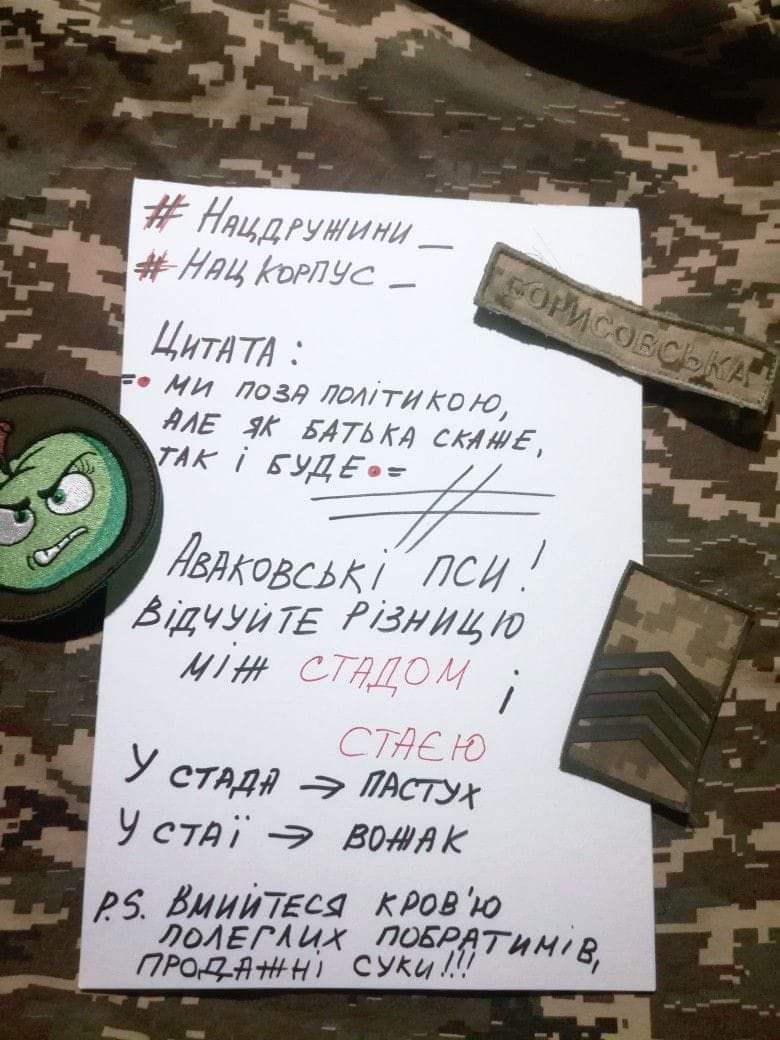 # Нацдружини_
# Нац корпус_
БОРИСОВСЬКА
Цитата :
=• ми поза політикою,
але як батька скаже,
так і буде •=
Аваковські пси!
Відчуйте різницю
між стадом і
стаєю
У стада → пастух
У стаї → вожак
P.S. Вмийтеся кров'ю
полеглих побратимів,
продажні суки!!!